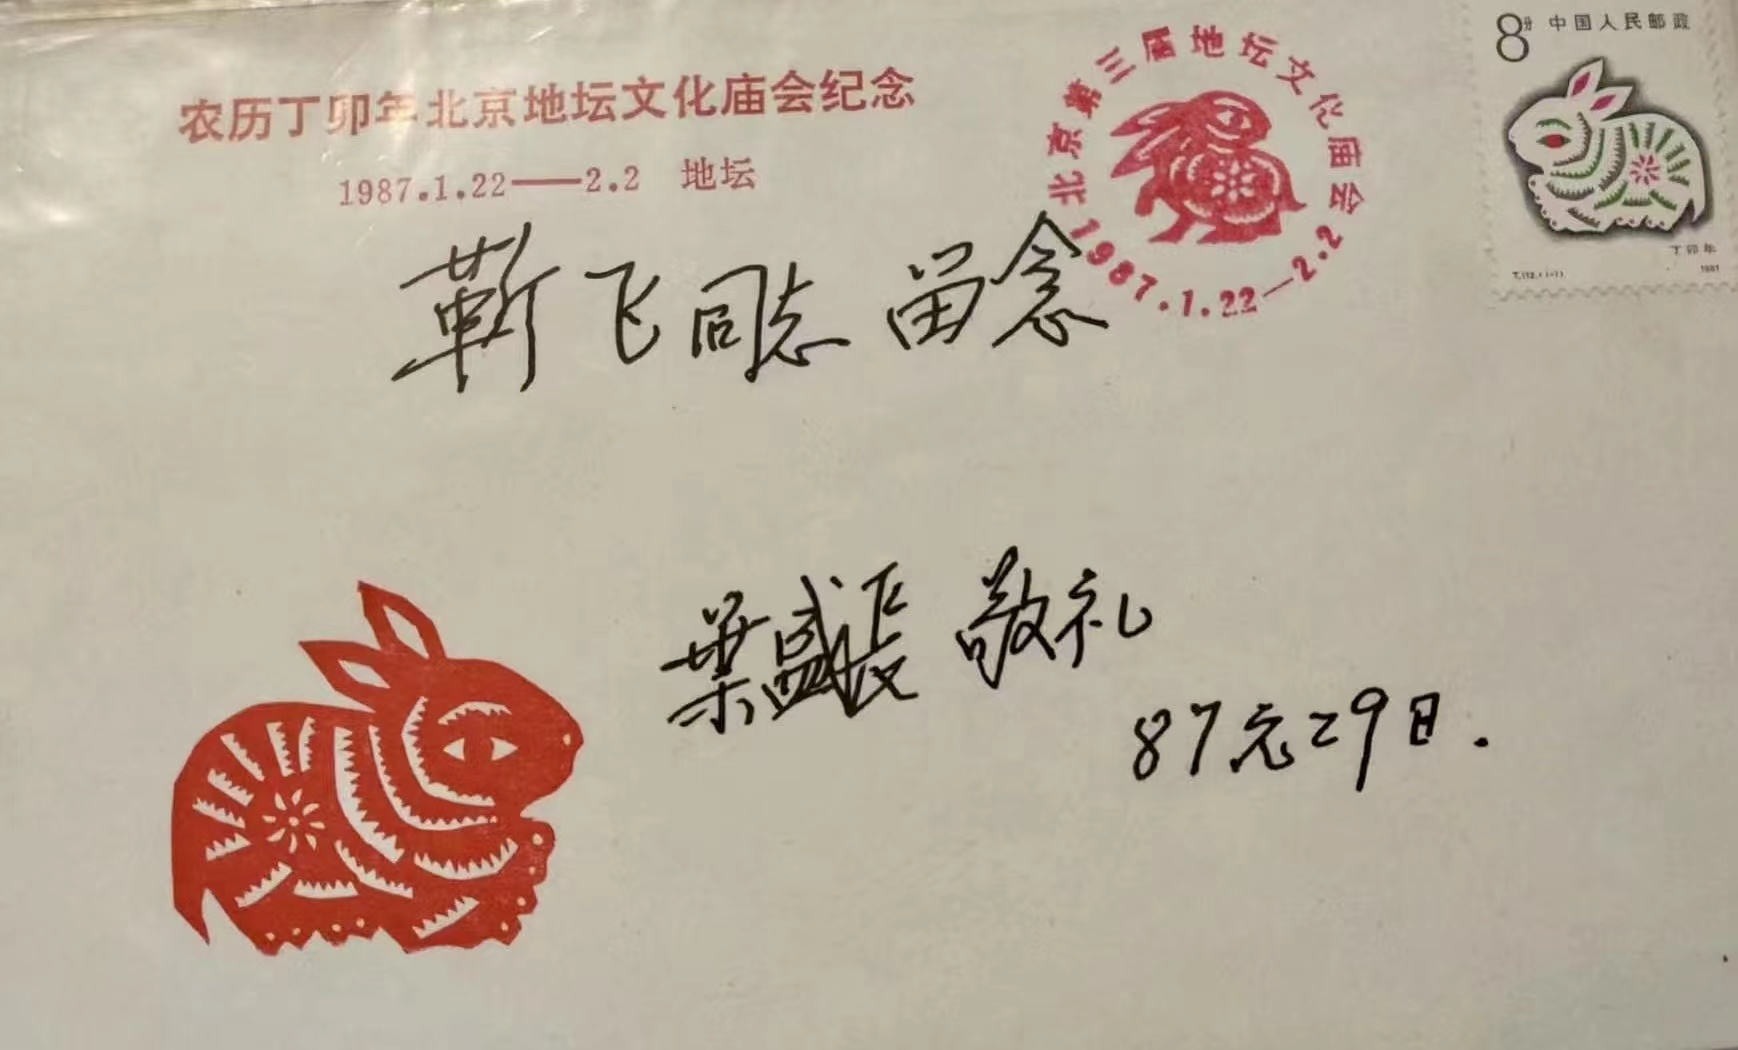 农历丁卯年北京地坛文化庙会纪念
1987.1.22——2.2 地坛
北京第三届地坛文化庙会
1987.1.22—2.2
8分 中国人民邮政
丁卯年
1987
靳飞同志 留念
叶盛长 敬礼
87元29日.